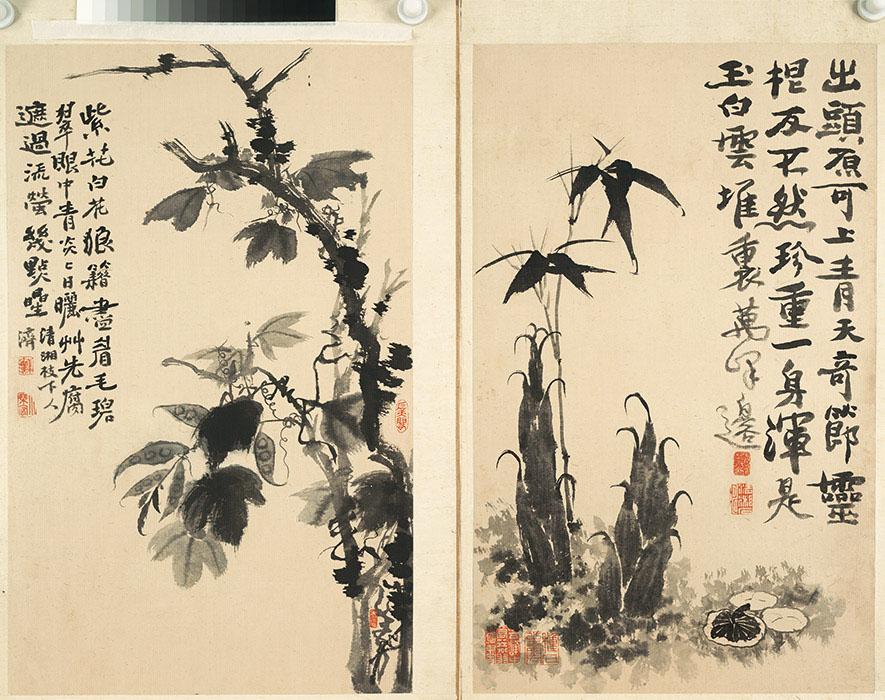 出頭原可上青天奇節靈
根反不然珍重一身渾是
玉白雲堆裏萬峰邊
紫花白花狼籍盡眉毛碧
翠眼中青炎〻日曬艸先腐
遮過流螢幾點星
清湘枝下人
濟